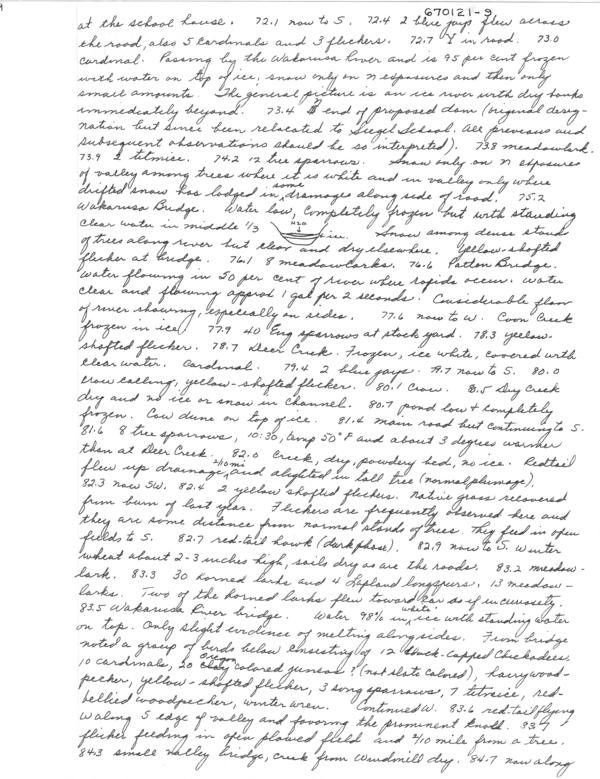 670121-9
at the school house. 72.1 now to S. 72.4 2 blue jays flew across
the road, also 5 cardinals and 3 flickers. 72.7 Y in road. 73.0
cardinal. Passing by the Wakarusa River and is 95 per cent frozen
with water on top of ice, snow only on N exposures and then only
small amounts. The general picture is an ice river with dry banks
immediately beyond. 73.4 end of proposed dam (original desig-
nation but since been relocated to Siegel School. All previous and
subsequent observations should be so interpreted). 73.8 meadowlark.
73.9 2 titmice. 74.2 12 tree sparrows. Snow only on N exposures
of valley among trees where it is white and in valley only where
drifted snow has lodged in some drainages along side of road. 75.2
Wakarusa Bridge. Water low, completely frozen but with standing
clear water in middle 1/3 H2O ice. Snow among dense stands
of trees along river but clear and dry elsewhere. Yellow-shafted
flicker at bridge. 76.1 8 meadowlarks. 76.6 Patton Bridge.
Water flowing in 50 per cent of river where rapids occur. Water
clear and flowing approx 1 gal per 2 seconds. Considerable floor
of river showing, especially on sides. 77.6 now to W. Coon Creek
frozen in ice. 77.9 40 Eng sparrows at stock yard. 78.3 yellow-
shafted flicker. 78.7 Deer Creek. Frozen, ice white, covered with
clear water. Cardinal. 79.4 2 blue jays. 79.7 now to S. 80.0
Crow calling, yellow-shafted flicker. 80.1 Crow. 80.5 Dry Creek
dry and no ice or snow in channel. 80.7 pond low & completely
frozen. Cow dung on top of ice. 81.4 main road but continuing to S.
81.6 8 tree sparrows, 10:30, temp 50°F and about 3 degrees warmer
than at Deer Creek. 82.0 Creek, dry, powdery bed, no ice. Redtail
flew up drainage 2/10 mi and alighted in tall tree (normal plumage).
82.3 now SW. 82.4 2 yellow shafted flickers. Native grass recovered
from burn of last year. Flickers are frequently observed here and
they are some distance from normal stands of trees. They feed in open
fields to S. 82.7 red-tail hawk (dark phase). 82.9 now to S. Winter
wheat about 2-3 inches high, soils dry as are the roads. 83.2 meadow-
lark. 83.3 30 horned larks and 4 Lapland longspurs, 13 meadow-
larks. Two of the horned larks flew toward car as if in curiosity.
83.5 Wakarusa River bridge. Water 98% in white ice with standing water
on top. Only slight evidence of melting alongsides. From bridge
noted a group of birds below consisting of 12 black-capped Chickadees,
10 cardinals, 20 Oregon colored juncos? (not slate colored), hairy wood-
pecker, yellow-shafted flicker, 3 song sparrows, 7 titmice, red-
bellied woodpecker, winter wren. Continued W. 83.6 red-tail flying
W along S edge of valley and favoring the prominent knoll. 83.7
flicker feeding in open plowed field and 2/10 mile from a tree.
84.3 small valley bridge, creek from Windmill dry. 84.7 now along